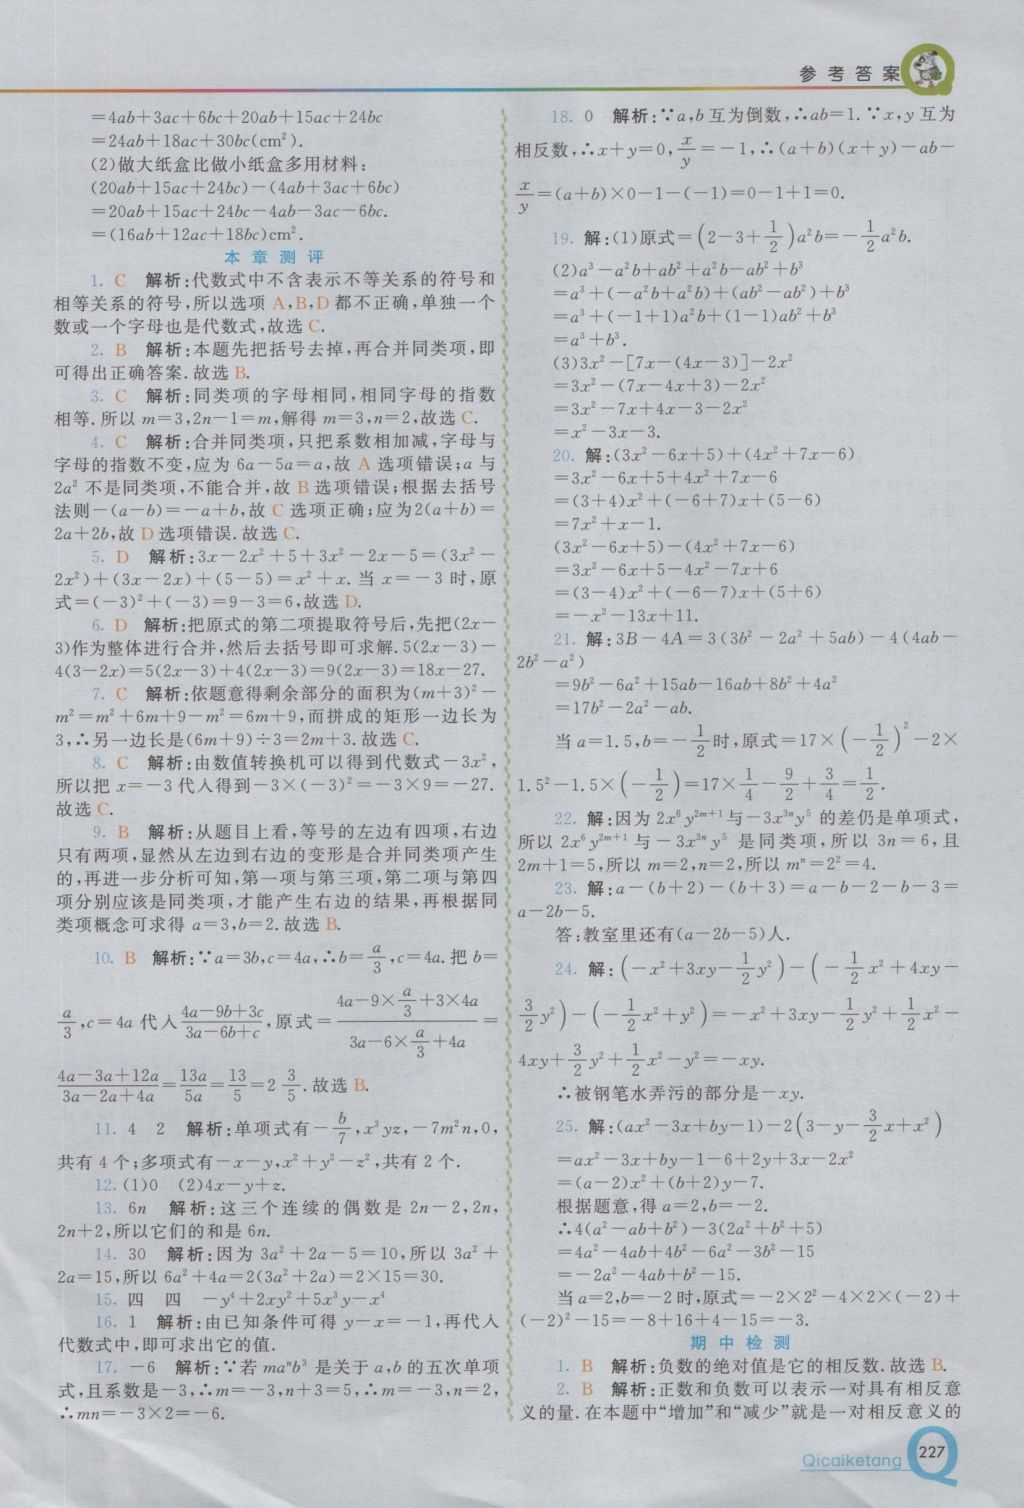 参考答案
=4ab+3ac+6bc+20ab+15ac+24bc
=24ab+18ac+30bc(cm²).
(2)做大纸盒比做小纸盒多用材料:
(20ab+15ac+24bc)-(4ab+3ac+6bc)
=20ab+15ac+24bc-4ab-3ac-6bc.
=(16ab+12ac+18bc)cm².
本章测评
1. C 解析:代数式中不含表示不等关系的符号和
相等关系的符号,所以选项 A,B,D 都不正确,单独一个
数或一个字母也是代数式,故选 C.
2. B 解析:本题先把括号去掉,再合并同类项,即
可得出正确答案.故选 B.
3. C 解析:同类项的字母相同,相同字母的指数
相等.所以 m=3,2n-1=m,解得 m=3,n=2,故选 C.
4. C 解析:合并同类项,只把系数相加减,字母与
字母的指数不变,应为 6a-5a=a,故 A 选项错误;a 与
2a² 不是同类项,不能合并,故 B 选项错误;根据去括号
法则-(a-b)=-a+b,故 C 选项正确;应为2(a+b)=
2a+2b,故 D 选项错误.故选 C.
5. D 解析:3x-2x²+5+3x²-2x-5=(3x²-
2x²)+(3x-2x)+(5-5)=x²+x.当 x=-3 时,原
式=(-3)²+(-3)=9-3=6,故选 D.
6. D 解析:把原式的第二项提取符号后,先把(2x-
3)作为整体进行合并,然后去括号即可求解.5(2x-3)-
4(3-2x)=5(2x-3)+4(2x-3)=9(2x-3)=18x-27.
7. C 解析:依题意得剩余部分的面积为(m+3)²-
m²=m²+6m+9-m²=6m+9,而拼成的矩形一边长为
3,∴另一边长是(6m+9)÷3=2m+3.故选 C.
8. C 解析:由数值转换机可以得到代数式-3x²,
所以把 x=-3 代入得到-3×(-3)²=-3×9=-27.
故选 C.
9. B 解析:从题目上看,等号的左边有四项,右边
只有两项,显然从左边到右边的变形是合并同类项产生
的,再进一步分析可知,第一项与第三项,第二项与第四
项分别应该是同类项,才能产生右边的结果,再根据同
类项概念可求得 a=3,b=2.故选 B.
10. B 解析:∵a=3b,c=4a,∴b=a/3,c=4a.把 b=
a/3,c=4a 代入(4a-9b+3c)/(3a-6b+c),原式=(4a-9×a/3+3×4a)/(3a-6×a/3+4a)=
(4a-3a+12a)/(3a-2a+4a)=13a/5a=13/5=2 3/5.故选 B.
11. 4 2 解析:单项式有-b/7,x³yz,-7m²n,0,
共有 4 个;多项式有-x-y,x²+y²-z²,共有 2 个.
12. (1)0 (2)4x-y+z.
13. 6n 解析:这三个连续的偶数是 2n-2,2n,
2n+2,所以它们的和是 6n.
14. 30 解析:因为 3a²+2a-5=10,所以 3a²+
2a=15,所以 6a²+4a=2(3a²+2a)=2×15=30.
15. 四 四 -y⁴+2xy²+5x³y-x⁴
16. 1 解析:由已知条件可得 y-x=-1,再代入
代数式中,即可求出它的值.
17. -6 解析:∵若 maⁿb³ 是关于 a,b 的五次单项
式,且系数是-3,∴m=-3,n+3=5,∴m=-3,n=2,
∴mn=-3×2=-6.
18. 0 解析:∵a,b 互为倒数,∴ab=1.∵x,y 互为
相反数,∴x+y=0,x/y=-1,∴(a+b)(x+y)-ab-
x/y=(a+b)×0-1-(-1)=0-1+1=0.
19. 解:(1)原式=(2-3+1/2)a²b=-1/2a²b.
(2)a³-a²b+ab²+a²b-ab²+b³
=a³+(-a²b+a²b)+(ab²-ab²)+b³
=a³+(-1+1)a²b+(1-1)ab²+b³
=a³+b³.
(3)3x²-[7x-(4x-3)]-2x²
=3x²-(7x-4x+3)-2x²
=3x²-7x+4x-3-2x²
=x²-3x-3.
20. 解:(3x²-6x+5)+(4x²+7x-6)
=3x²-6x+5+4x²+7x-6
=(3+4)x²+(-6+7)x+(5-6)
=7x²+x-1.
(3x²-6x+5)-(4x²+7x-6)
=3x²-6x+5-4x²-7x+6
=(3-4)x²+(-6-7)x+(5+6)
=-x²-13x+11.
21. 解:3B-4A=3(3b²-2a²+5ab)-4(4ab-
2b²-a²)
=9b²-6a²+15ab-16ab+8b²+4a²
=17b²-2a²-ab.
当 a=1.5,b=-1/2时,原式=17×(-1/2)²-2×
1.5²-1.5×(-1/2)=17×1/4-9/2+3/4=1/2.
22. 解:因为 2x⁶y²ᵐ⁺¹与-3x³ⁿy⁵ 的差仍是单项式,
所以 2x⁶y²ᵐ⁺¹与-3x³ⁿy⁵ 是同类项,所以 3n=6,且
2m+1=5,所以 m=2,n=2,所以 mⁿ=2²=4.
23. 解:a-(b+2)-(b+3)=a-b-2-b-3=
a-2b-5.
答:教室里还有(a-2b-5)人.
24. 解:(-x²+3xy-1/2y²)-(-1/2x²+4xy-
3/2y²)-(-1/2x²+y²)=-x²+3xy-1/2y²+1/2x²-
4xy+3/2y²+1/2x²-y²=-xy.
∴被钢笔水弄污的部分是-xy.
25. 解:(ax²-3x+by-1)-2(3-y-3/2x+x²)
=ax²-3x+by-1-6+2y+3x-2x²
=(a-2)x²+(b+2)y-7.
根据题意,得 a=2,b=-2.
∴4(a²-ab+b²)-3(2a²+b²+5)
=4a²-4ab+4b²-6a²-3b²-15
=-2a²-4ab+b²-15.
当 a=2,b=-2 时,原式=-2×2²-4×2×(-2)+
(-2)²-15=-8+16+4-15=-3.
期中检测
1. B 解析:负数的绝对值是它的相反数.故选 B.
2. B 解析:正数和负数可以表示一对具有相反意
义的量.在本题中“增加”和“减少”就是一对相反意义的
Qicaiketang 227